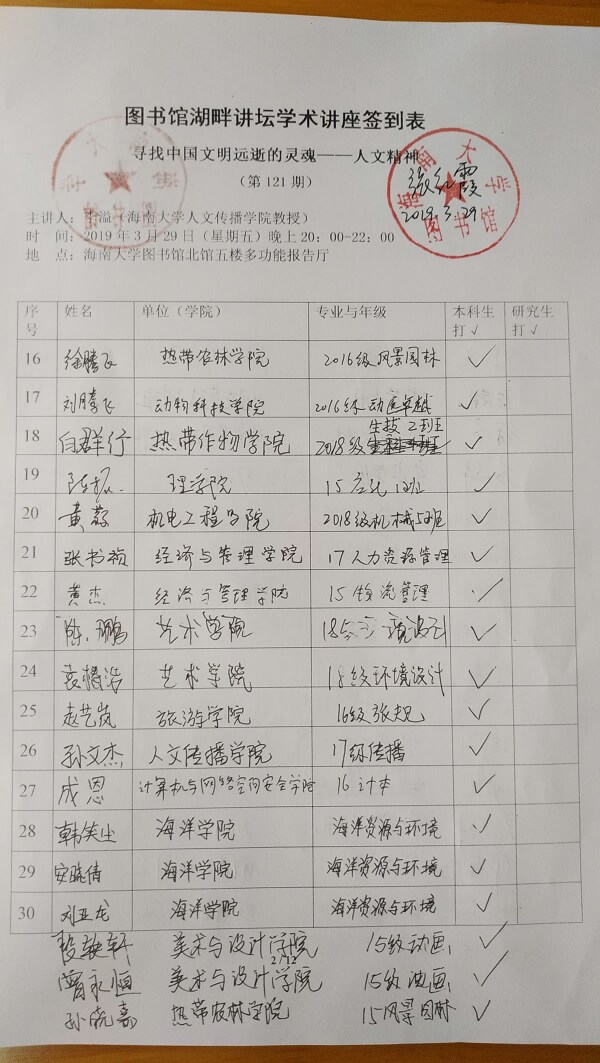 图书馆湖畔讲坛学术讲座签到表
寻找中国文明远逝的灵魂——人文精神
（第 121 期）
海南大学图书馆
2019.3.29
主讲人：李溢（海南大学人文传播学院教授）
时 间：2019 年 3 月 29 日（星期五）晚上 20：00-22：00
地 点：海南大学图书馆北馆五楼多功能报告厅
序号 姓名 单位（学院） 专业与年级 本科生打√ 研究生打√
16 徐腾飞 热带农林学院 2016级风景园林 ✓
17 刘腾飞 动物科技学院 2016级动医卓越 ✓
生技2班
18 白群行 热带作物学院 2018级 ✓
19 理学院 15应化1班 ✓
20 黄蓉 机电工程学院 2018级机械5班 ✓
21 张书祯 经济与管理学院 17人力资源管理 ✓
22 黄杰 经济与管理学院 15物流管理 ✓
23 陈鹏 艺术学院 18 环境设计 ✓
24 袁椿浩 艺术学院 18级环境设计 ✓
25 赵艺岚 旅游学院 16级 ✓
26 孙文杰 人文传播学院 17级传播 ✓
27 成恩 计算机与网络空间安全学院 16计本 ✓
28 韩笑尘 海洋学院 海洋资源与环境 ✓
29 安晓倩 海洋学院 海洋资源与环境 ✓
30 刘亚龙 海洋学院 海洋资源与环境 ✓
段轩 美术与设计学院 15级动画 ✓
2/12
曾永恒 美术与设计学院 15级动画 ✓
孙晓嘉 热带农林学院 15风景园林 ✓